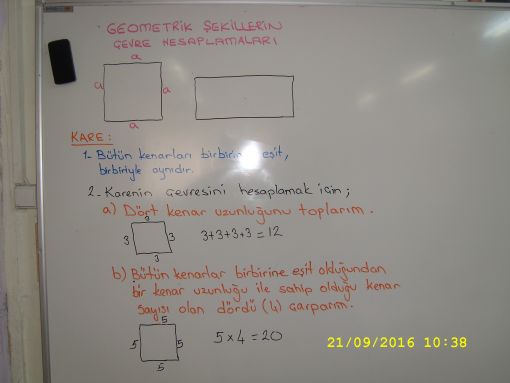 GEOMETRİK ŞEKİLLERİN
ÇEVRE HESAPLAMALARI
a
a a
a
KARE:
1- Bütün kenarları birbirine eşit,
birbiriyle aynıdır.
2- Karenin çevresini hesaplamak için;
a) Dört kenar uzunluğunu toplarım.
3
3 3 3+3+3+3=12
3
b) Bütün kenarlar birbirine eşit olduğundan
bir kenar uzunluğu ile sahip olduğu kenar
sayısı olan dördü (4) çarparım.
5
5 5 5x4=20
5
21/09/2016 10:38